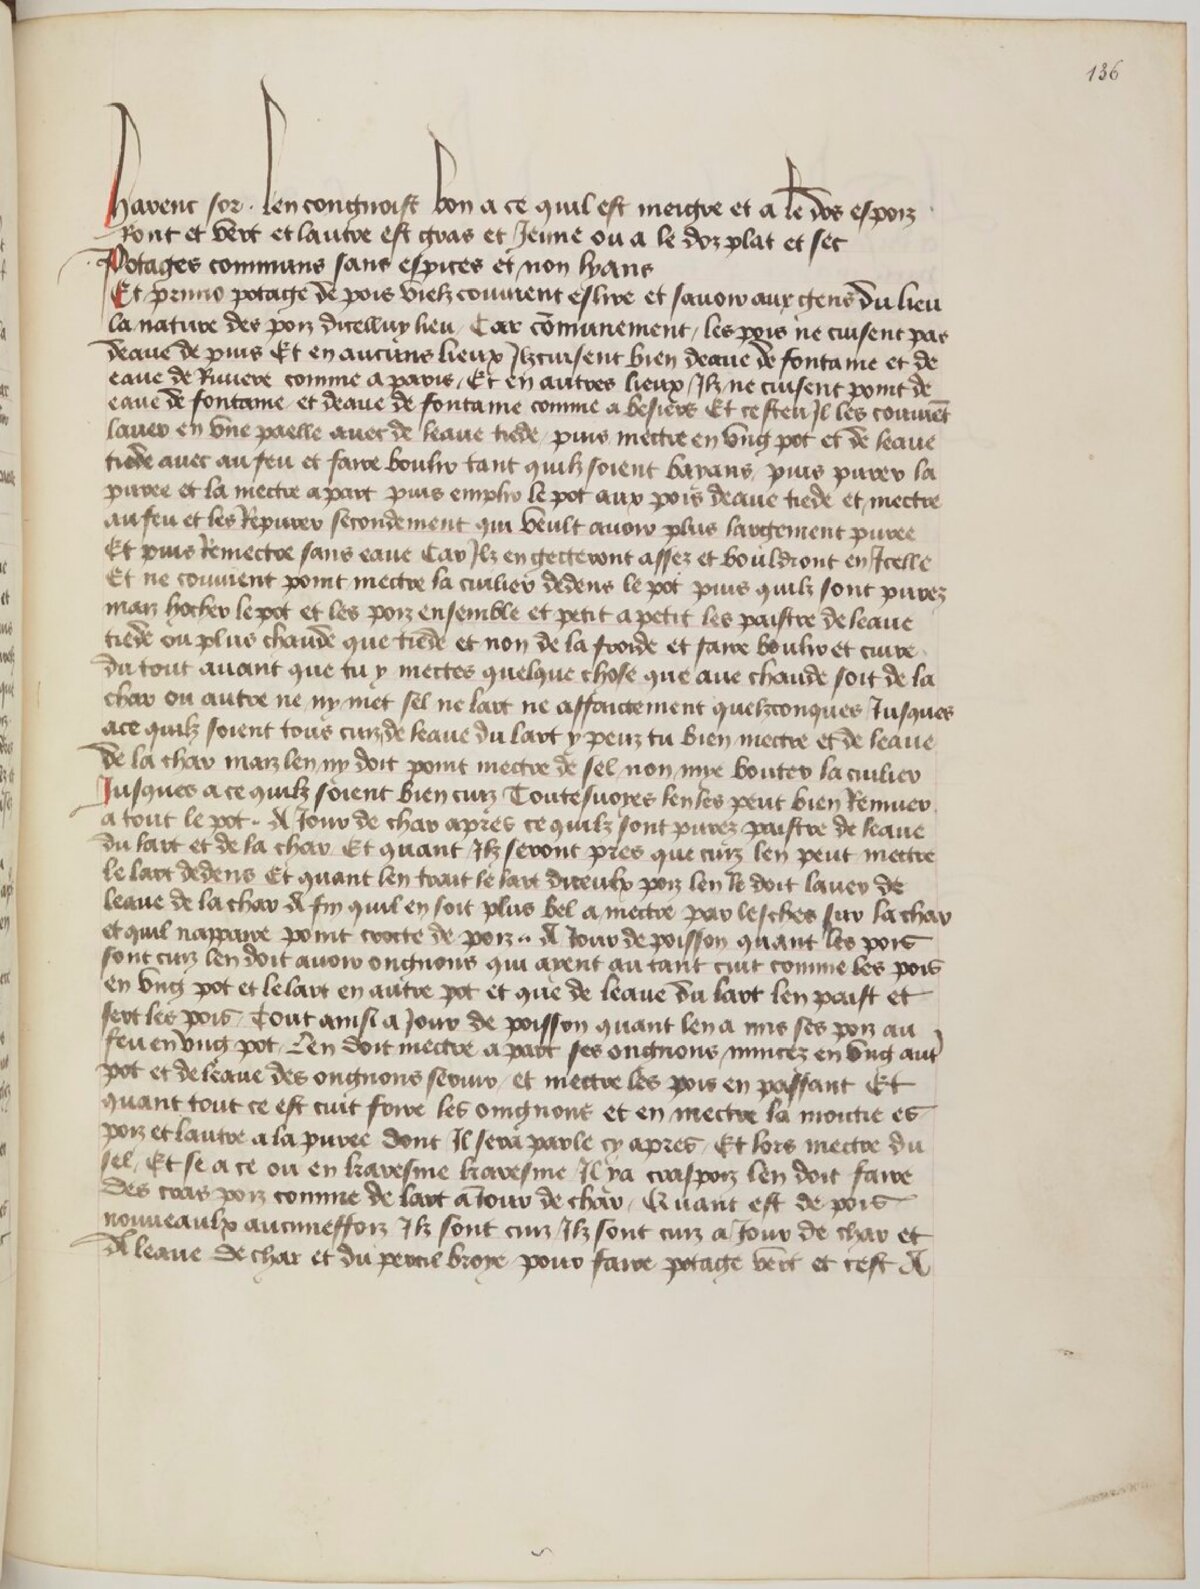 136
Harenc sor. Len congnoist bon a ce quil est meigre et a le dos espoiz
Ront et vert et lautre est gras et Jeune ou a le doz plat et sec
Potages communs sans espices et non lyans
Et primo potage de pois vielz convient eslire et savoir aux gens du lieu
la nature des poiz dicelluy lieu Car cōmunement les pois ne cuisent pas
deaue de puis Et en aucuns lieux Ilz cuisent bien deaue de fontaine et de
eaue de Riviere comme a paris Et en autres lieux Ilz ne cuisent point de
eaue de fontaine et deaue de fontaine comme a besiers Et ce sceu Il les couviēt
laver en vne paelle avec de leaue tiede puis mectre en vng pot et de leaue
tiede avec au feu et faire boulir tant quilz soient bayans puis purer la
puree et la mectre apart puis emplir le pot aux pois deaue tiede et mectre
au feu et les Repurer secondement qui veult avoir plus largement puree
Et puis Remectre sans eaue Car Ilz en gecteront assez et bouldront en Icelle
Et ne convient point mectre la cuilier dedens le pot puis quilz sont purez
maiz hocher le pot et les poiz ensemble et petit a petit les paistre de leaue
tiede ou plus chaude que tiede et non de la froide et faire boulir et cuire
du tout avant que tu y mectes quelque chose que aue chaude soit de la
char ou autre ne ny met sel ne lart ne affaictement quelzconques Jusques
ace quilz soient tous cuiz de leaue du lart y peuz tu bien mectre et de leaue
de la char maiz len ny doit point mectre de sel non mye bouter la cuilier
Jusques a ce quilz soient bien cuiz Toutesuoyes len les peut bien Remuer
a tout le pot. A Jour de char apres ce quilz sont purez paistre de leaue
du lart et de la char Et quant Ilz seront pres que cuiz len peut mectre
le lart dedens Et quant len trait le lart diceulx poiz len le doit laver de
leaue de la char A fin quil en soit plus bel a mectre par lesches sur la char
et quil nappaire point crocte de poiz. A Jour de poisson quant les pois
sont cuiz len doit avoir ongnons qui ayent au tant cuit comme les pois
en vng pot et le lart en autre pot et que de leaue du lart len paist et
sert les pois Tout ainsi a Jour de poisson quant len a mis ses poiz au
feu en vng pot Len doit mectre a part ses ongnons mincez en vng aut'
pot et de leaue des ongnons servir et mectre les pois en passant Et
quant tout ce est cuit frire les oingnons et en mectre la moictie es
poiz et lautre a la puree dont Il sera parle cy apres Et lors mectre du
sel Et se a ce ou en karesme karesme Il ya craspoiz len doit faire
des cras poiz comme de lart a Jour de char Quant est de pois
nouveaulx aucuneffoiz Ilz sont cuiz Ilz sont cuiz a Jour de char et
A leaue de char et du percil broye pour faire potage vert et cest A